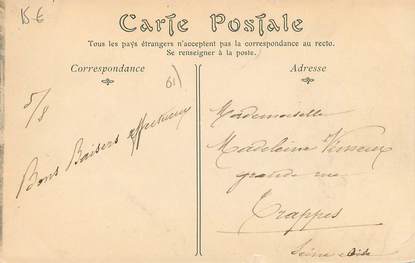 15 €
Carte Postale
Tous les pays étrangers n'acceptent pas la correspondance au recto.
Se renseigner à la poste.
Correspondance
Adresse
61)
5/8
Bons Baisers affectueux
Mademoiselle
Madeleine
grande rue
Trappes
Seine et Oise